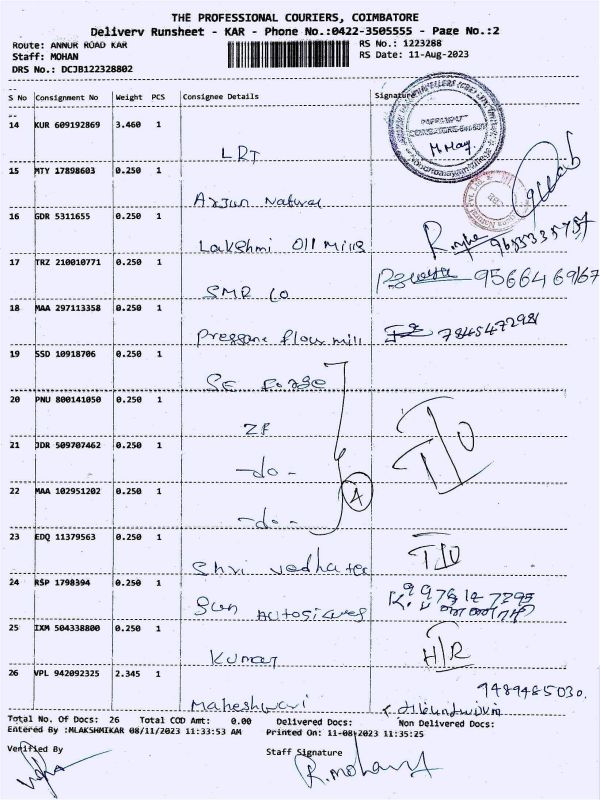 THE PROFESSIONAL COURIERS, COIMBATORE
Delivery Runsheet - KAR - Phone No.:0422-3505555 - Page No.:2
Route: ANNUR ROAD KAR RS No.: 1223288
Staff: MOHAN RS Date: 11-Aug-2023
DRS No.: DCJB122328802
S No Consignment No Weight PCS Consignee Details Signature
14 KUR 609192869 3.460 1
LRT
15 MTY 17898603 0.250 1
Arjun Natural
16 GDR 5311655 0.250 1
Lakshmi Oil Mills
17 TRZ 210010771 0.250 1
SMR Co 9566469167
18 MAA 297113358 0.250 1
flour mill 7845472981
19 SSD 10918706 0.250 1
SE Forge
20 PNU 800141050 0.250 1
ZF
21 JDR 509707462 0.250 1
-do-
22 MAA 102951202 0.250 1
4
-do-
23 EDQ 11379563 0.250 1
Shri vedha tec
24 RSP 1798394 0.250 1
Sun
25 IXM 504338800 0.250 1
Kumar H/R
26 VPL 942092325 2.345 1
9489485030.
Maheshwari
Total No. Of Docs: 26 Total COD Amt: 0.00 Delivered Docs: Non Delivered Docs:
Entered By :MLAKSHMIKAR 08/11/2023 11:33:53 AM Printed On: 11-08-2023 11:35:25
Verified By Staff Signature
R. Mohan